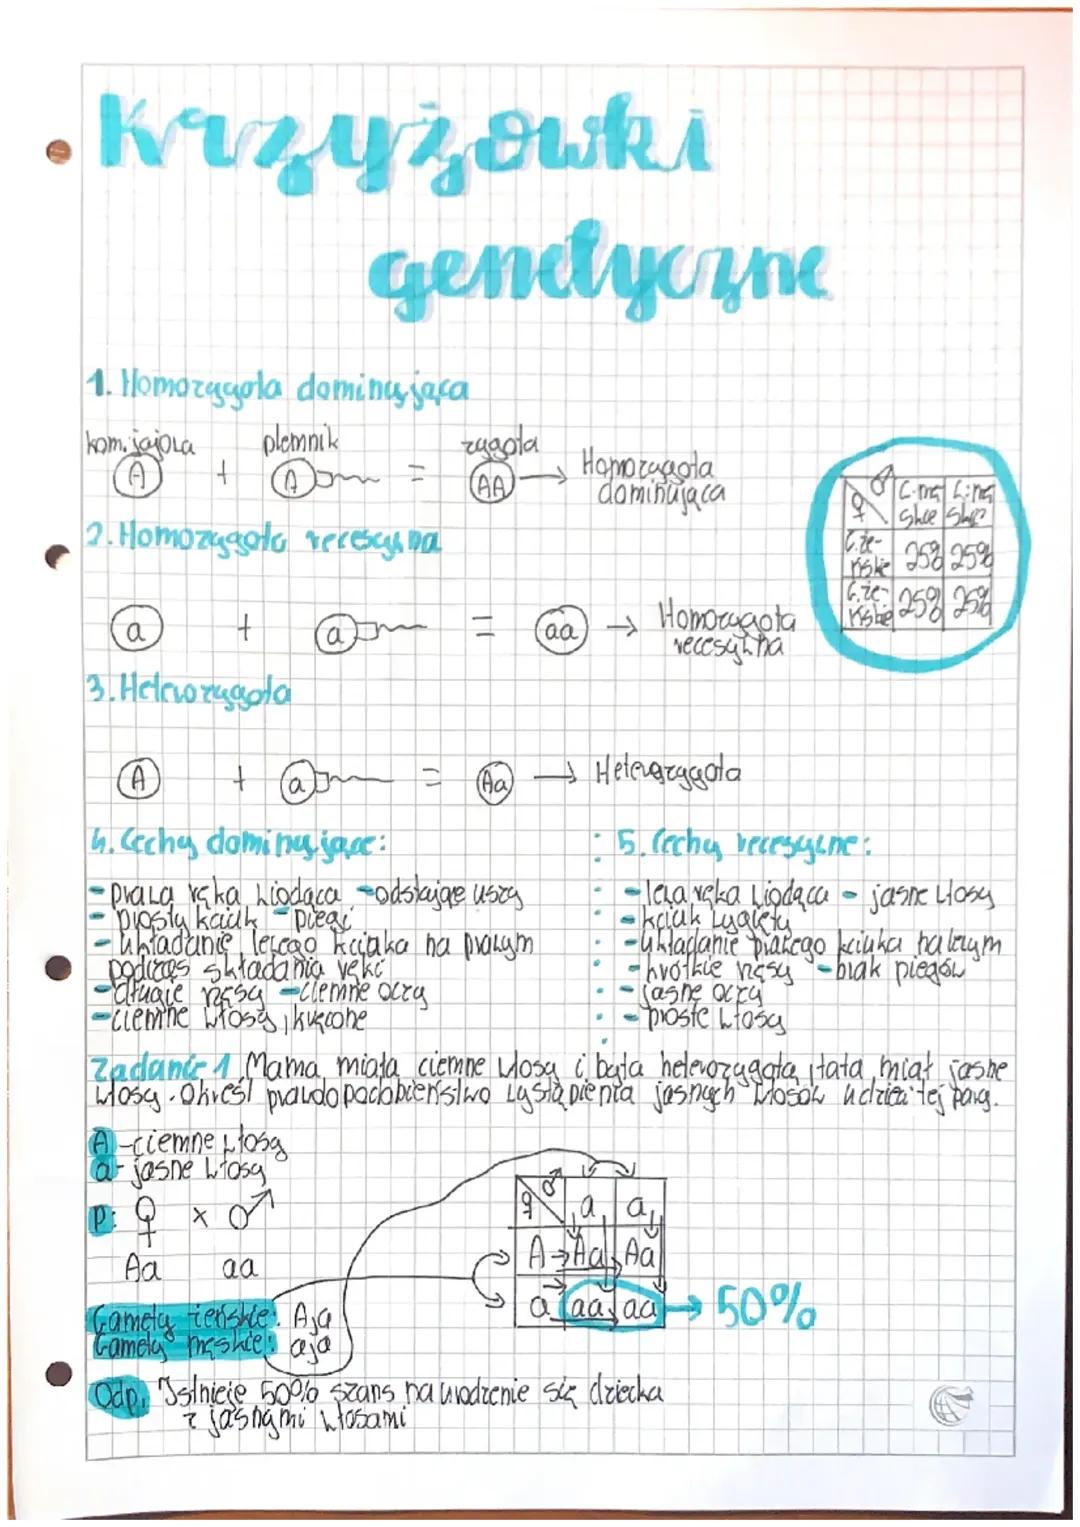 Krzyżówki
genetyczne
1. Homozygota dominująca
kom. jajowa plemnik zygota
A + A = AA → Homozygota
dominująca
♀ ♂ C. mę
skie C. mę
skie
C. że-
ńskie 25% 25%
C. że-
ńskie 25% 25%
2. Homozygota recesywna
a + a = aa → Homozygota
recesywna
3. Heterozygota
A + a = Aa → Heterozygota
4. Cechy dominujące:
- prawa ręka wiodąca - odstające uszy
- prosty kciuk - piegi
- układanie lewego kciuka na prawym
podczas składania ręki
- długie rzęsy - ciemne oczy
- ciemne włosy, kręcone
5. Cechy recesywne:
- lewa ręka wiodąca - jasne włosy
- kciuk wygięty
- układanie prawego kciuka na lewym
- krótkie rzęsy - brak piegów
- jasne oczy
- proste włosy
Zadanie 1 Mama miała ciemne włosy i była heterozygotą, tata miał jasne
włosy. Określ prawdopodobieństwo wystąpienia jasnych włosów u dzieci tej pary.
A - ciemne włosy
a - jasne włosy
P: ♀ x ♂
Aa aa
Gamety żeńskie: A, a
Gamety męskie: a, a
♀ ♂ a a
A Aa Aa
a aa aa → 50%
Odp. Istnieje 50% szans na urodzenie się dziecka
z jasnymi włosami